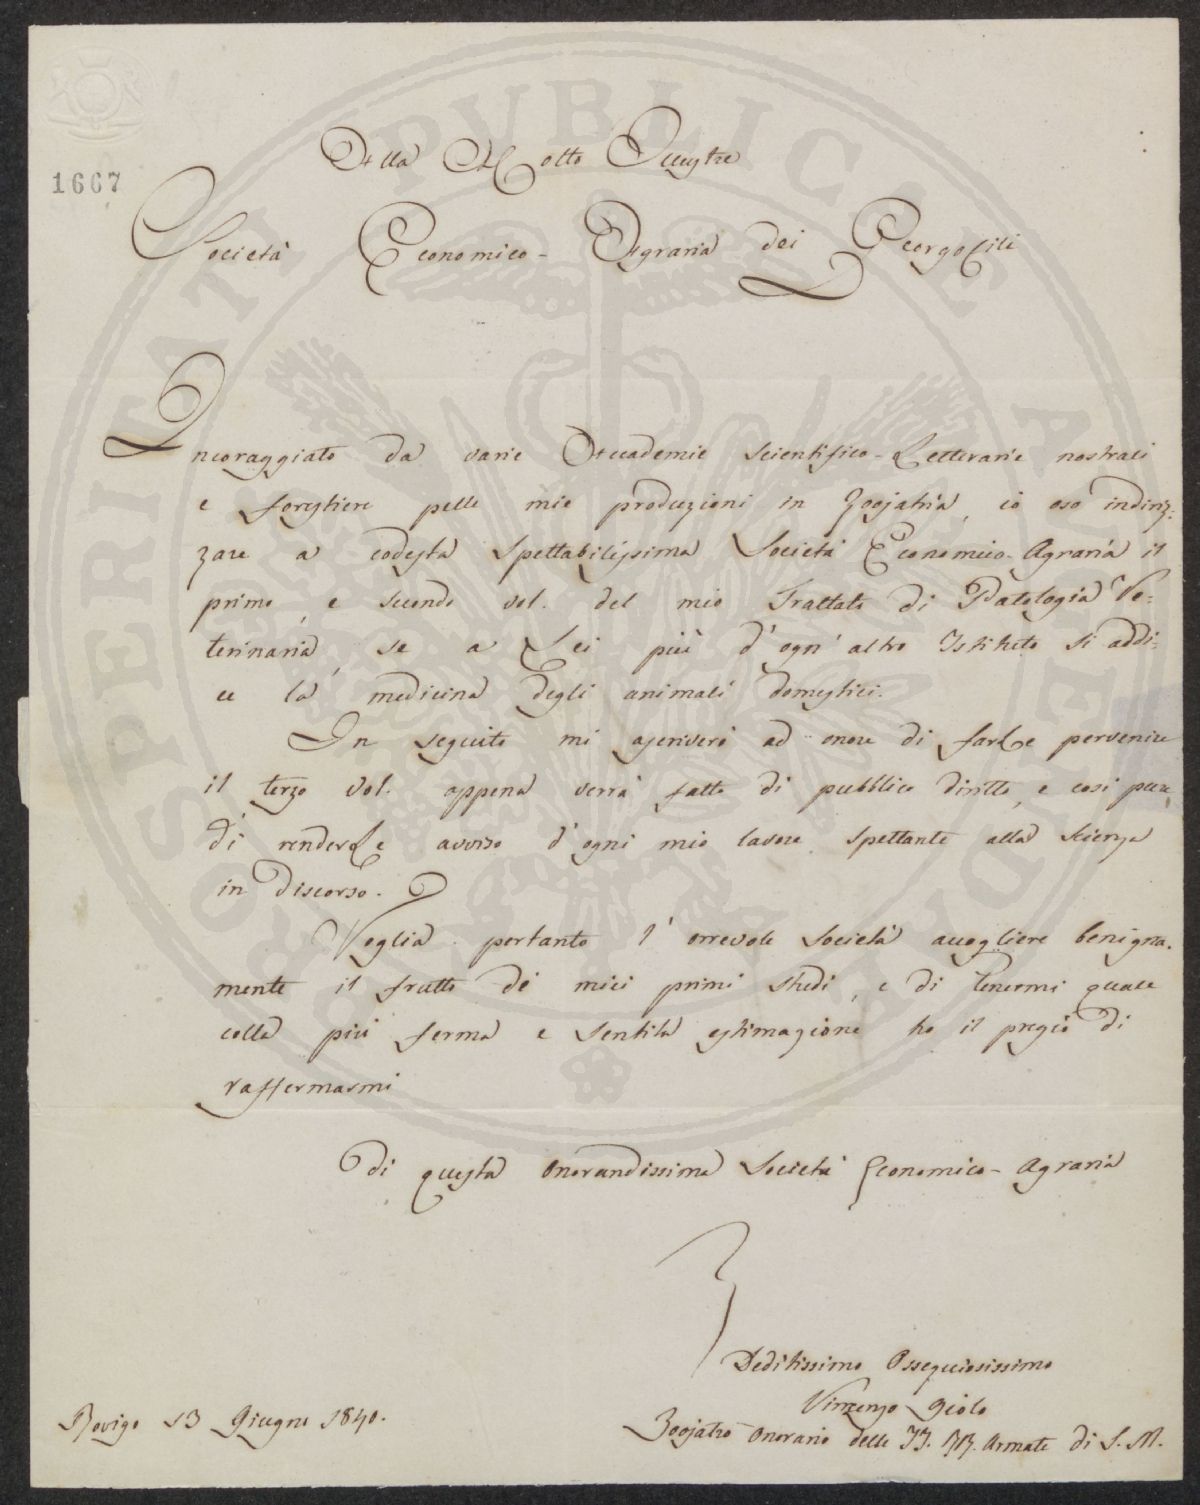 1667
Alla Molto Illustre
Società Economico-Agraria dei Georgofili
Incoraggiato da varie Accademie scientifico-Letterarie nostrali
e forestiere pelle mie produzioni in Zoojatria, io oso indiriz:
zare a codesta spettabilissima Società Economico-Agraria il
primo, e secondo vol. del mio Trattato di Patologia Ve:
terinaria, se a Lei più d'ogn'altro Istituto si addi:
ce la medicina degli animali domestici.
In seguito mi ascriverò ad onore di farLe pervenire
il terzo vol. appena verrà fatto di pubblico diritto, e così pure
di renderLe avviso d'ogni mio lavoro spettante alla scienza
in discorso.
Voglia pertanto l'orrevole Società accogliere benigna.
mente il frutto de miei primi studi, e di tenermi quale
colla più ferma e sentita estimazione ho il pregio di
raffermarmi
Di questa Onorandissima Società Economico-Agraria
Deditissimo Ossequiosissimo
Vinzenzo Giolo
Zoojatro Onorario delle II. RR. Armate di S. M.
Rovigo 13 Giugno 1840.
PROSPERITATI PUBLICAE AUGENDAE